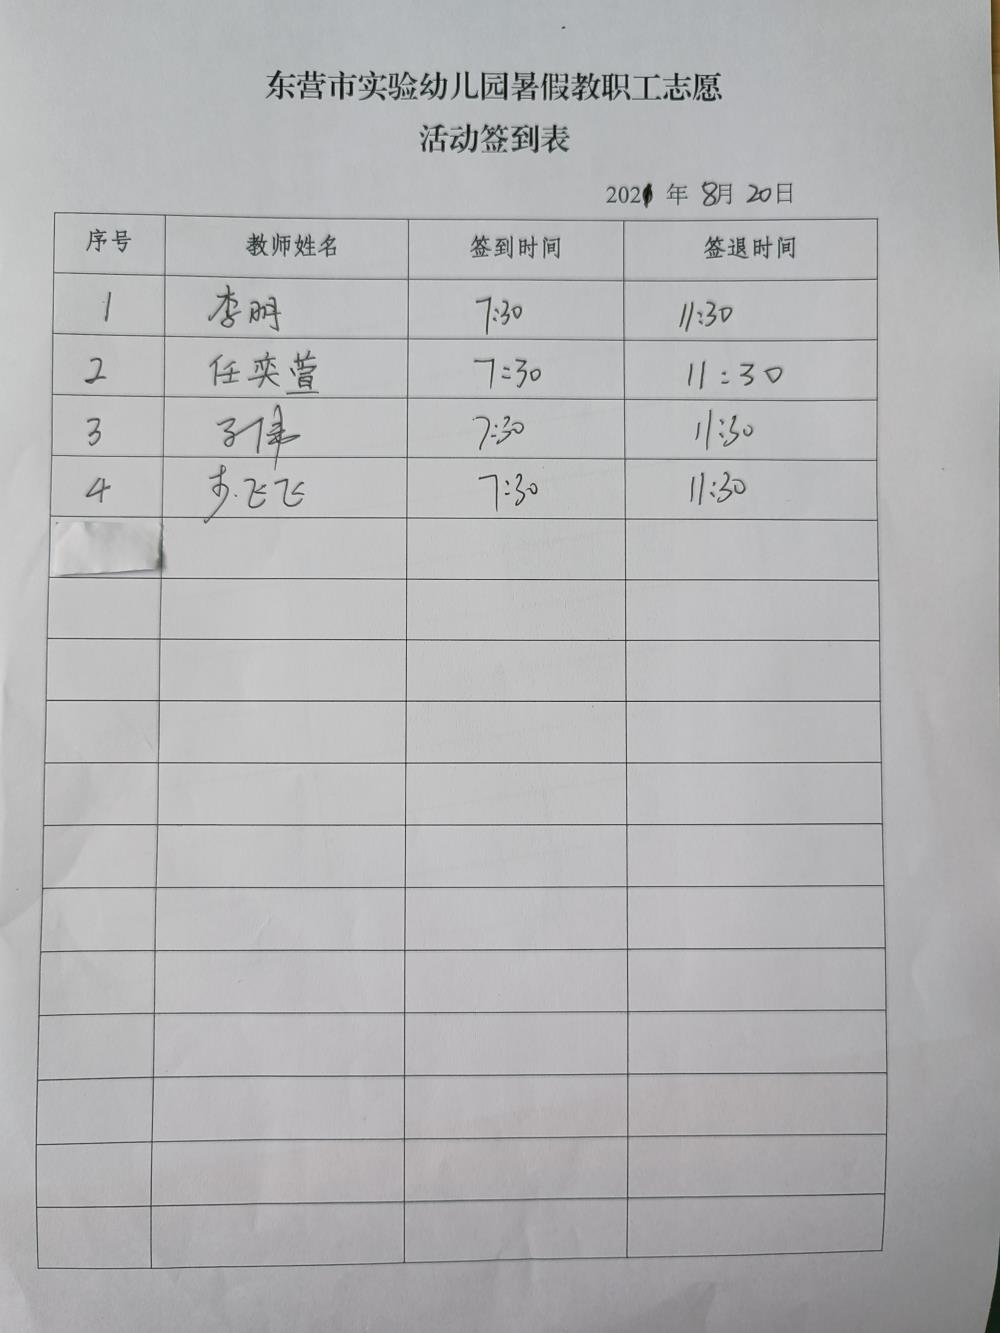 东营市实验幼儿园暑假教职工志愿
活动签到表
2021 年 8月 20日
序号 教师姓名 签到时间 签退时间
1 李明 7:30 11:30
2 任奕萱 7:30 11:30
3 7:30 11:30
4 步飞飞 7:30 11:30